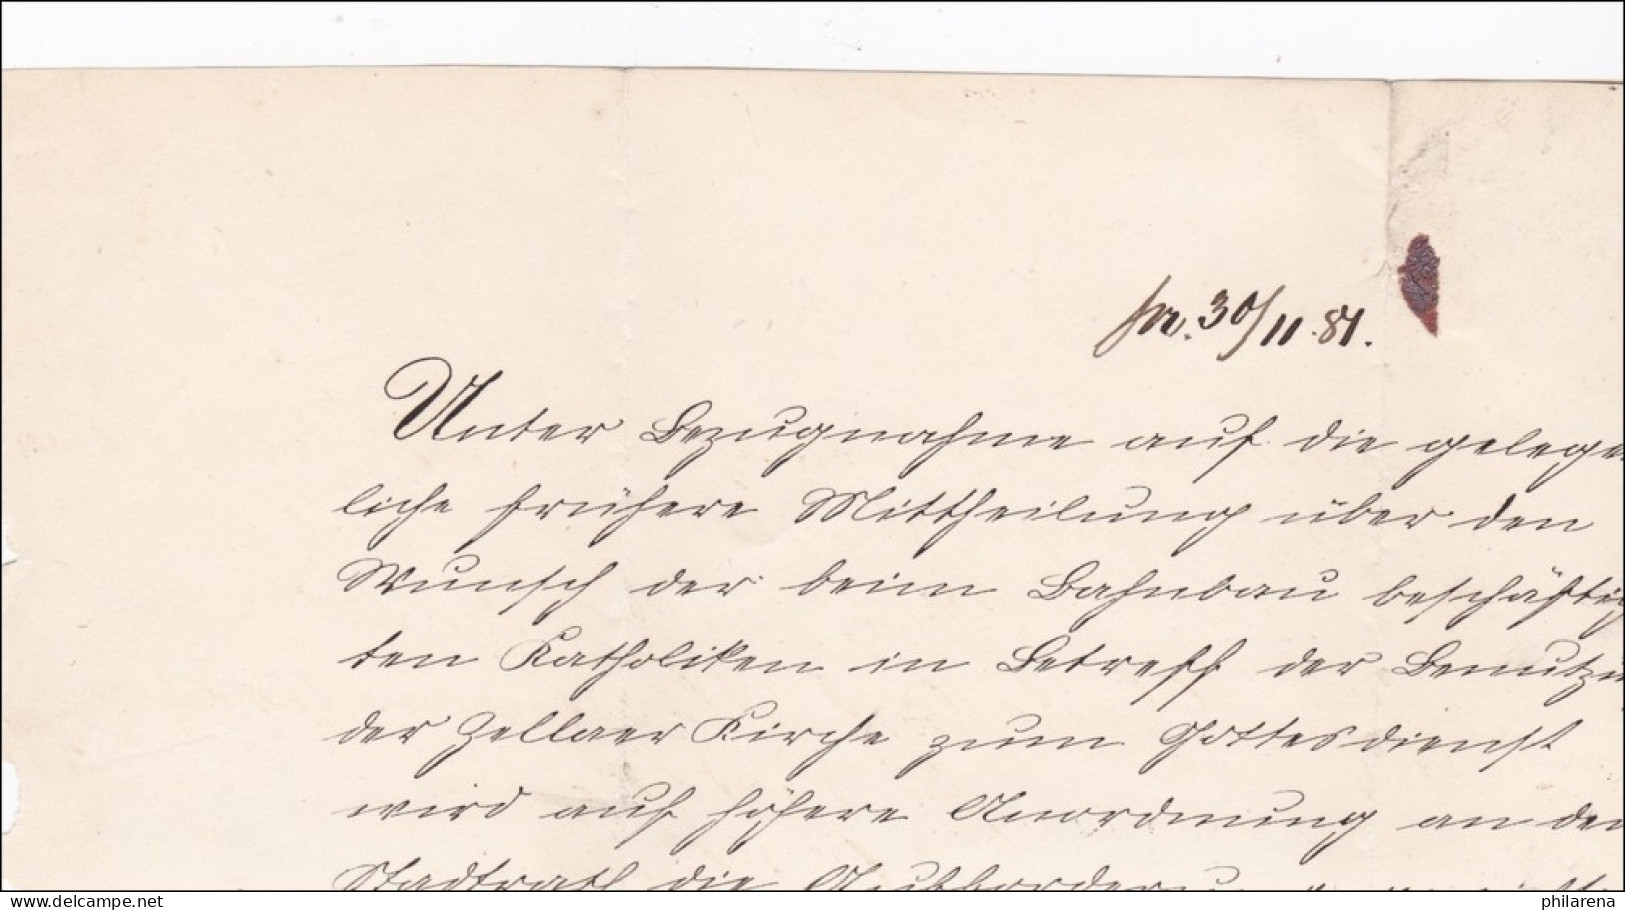 pr. 30/11.81.
Unter Bezugnahme auf die gelege
liche frühere Mittheilung über den
Wunsch der beim Bahnbau beschäftig
ten Katholiken in Betreff der Benutzu
der Zellaer Kirche zum Gottesdienst
wird auf höhere Anordnung an den
Stadtrath die
delcampe.net
philarena